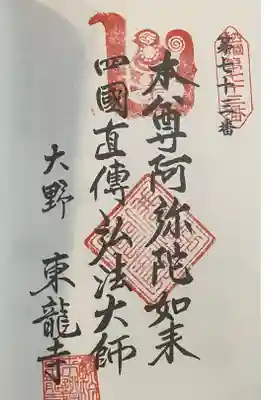 第七十三番
本尊阿弥陀如来
四國直傳弘法大師
大野 東龍寺